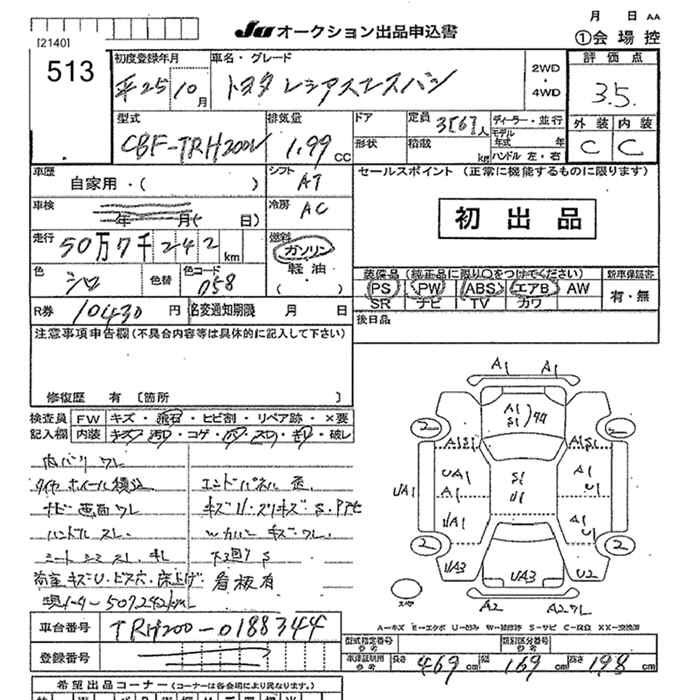 [2140]
JU オークション出品申込書
月 日 AA
①会場控
513
初度登録年月
平25年10月
車名・グレード
トヨタ レジアスエースバン
2WD
・
4WD
評価点
3.5
型式
CBF-TRH200V
排気量
1.99 CC
ドア
形状
定員 3[6]人
積載 kg
ディーラー・並行
モデル年式 年
ハンドル 左・右
外装 内装
C C
車歴
自家用・( )
シフト
AT
セールスポイント (正常に機能するものに限ります)
初出品
車検
年 月( 日)
冷房
AC
走行
50万7千242km
燃料
ガソリン
軽油
( )
色
シロ
色替
色コード
058
装備品(純正品に限り○をつけてください)
新車保証書
PS PW ABS エアB AW
SR ナビ TV カワ
有・無
R券 10430円
名変通知期限 月 日
後日品
注意事項申告欄(不具合内容等は具体的に記入して下さい)
修復歴 有 [箇所 ]
検査員記入欄
FW キズ・飛石・ヒビ割・リペア跡・×要
内装 キズ・汚れ・コゲ・穴・スレ・キレ・破レ
内バリ ワレ
タイヤ ホイール積込
ナビ画面 ワレ
ハンドル スレ
シート シミ スレ キレ
荷室 キズU・ビス穴・床上げ
現メーター 507242km
エンドパネル 歪
下回り S
看板有
A1
A1
A1
S1
2
2
A1S1
A1S1
UA1
UA1
A1
UA1
S1
U1
A1
U1
A1
U1
2
2
UA3
UA3
U2
A2
A2ワレ
スペア
A―キズ E―エクボ U―凹み W―補修跡 S―サビ C―腐食 XX―交換済
車台番号
TRH200-0188344
登録番号
型式指定番号 参考
類別区分番号 参考
車庫証明用 参考
長さ 469cm 幅 169cm 高さ 198cm
希望出品コーナー(コーナーは各会場により異なります)